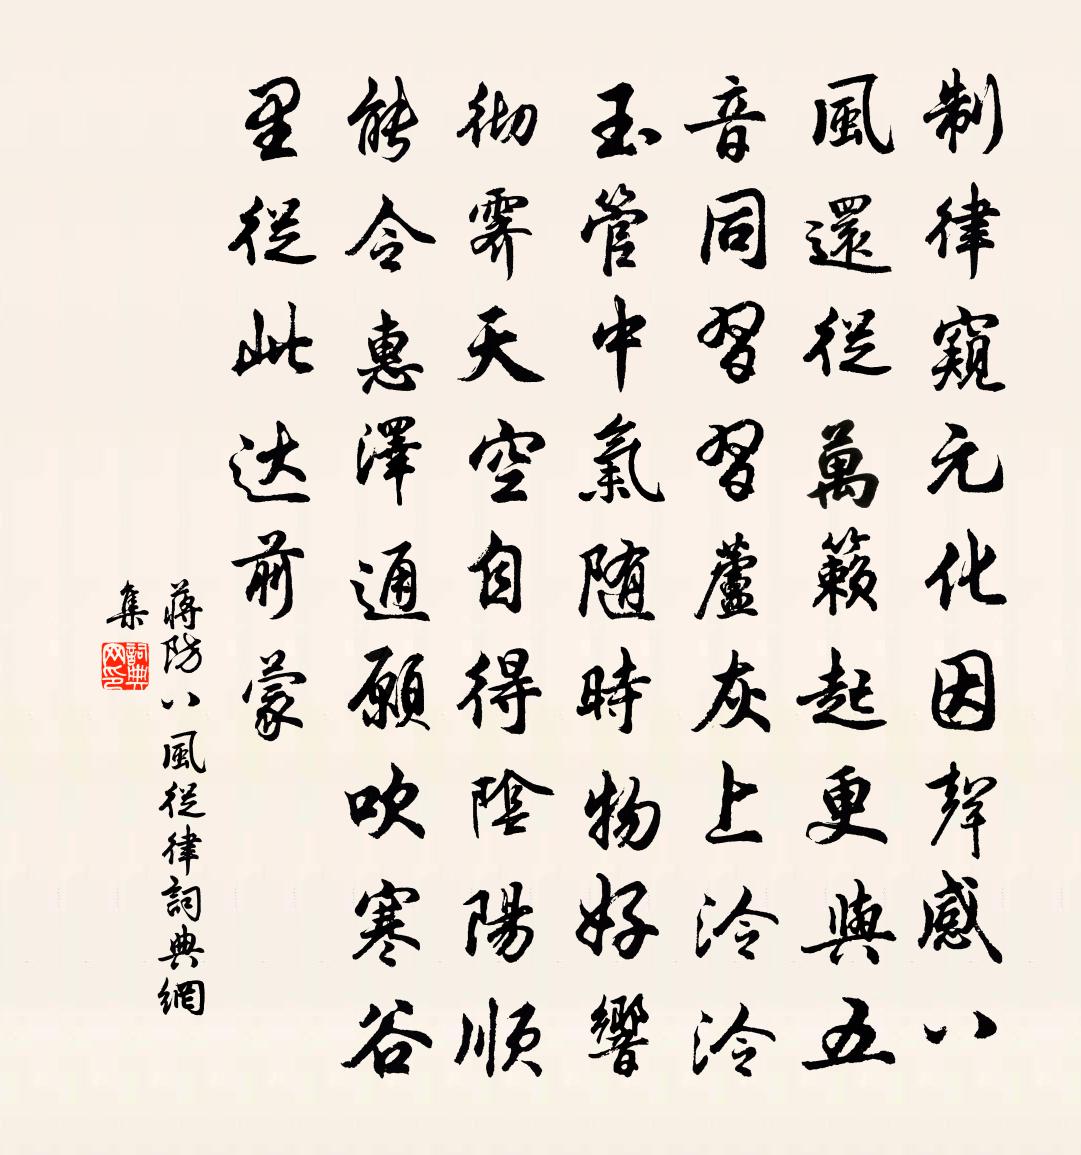 制律窺元化因聲感八
風還從萬籟起更與五
音同習習蘆灰上泠泠
玉管中氣隨時物好響
徹霽天空自得陰陽順
能令惠澤通願吹寒谷
里從此达前蒙
蔣防八風從律詞典網
集
詞典網印